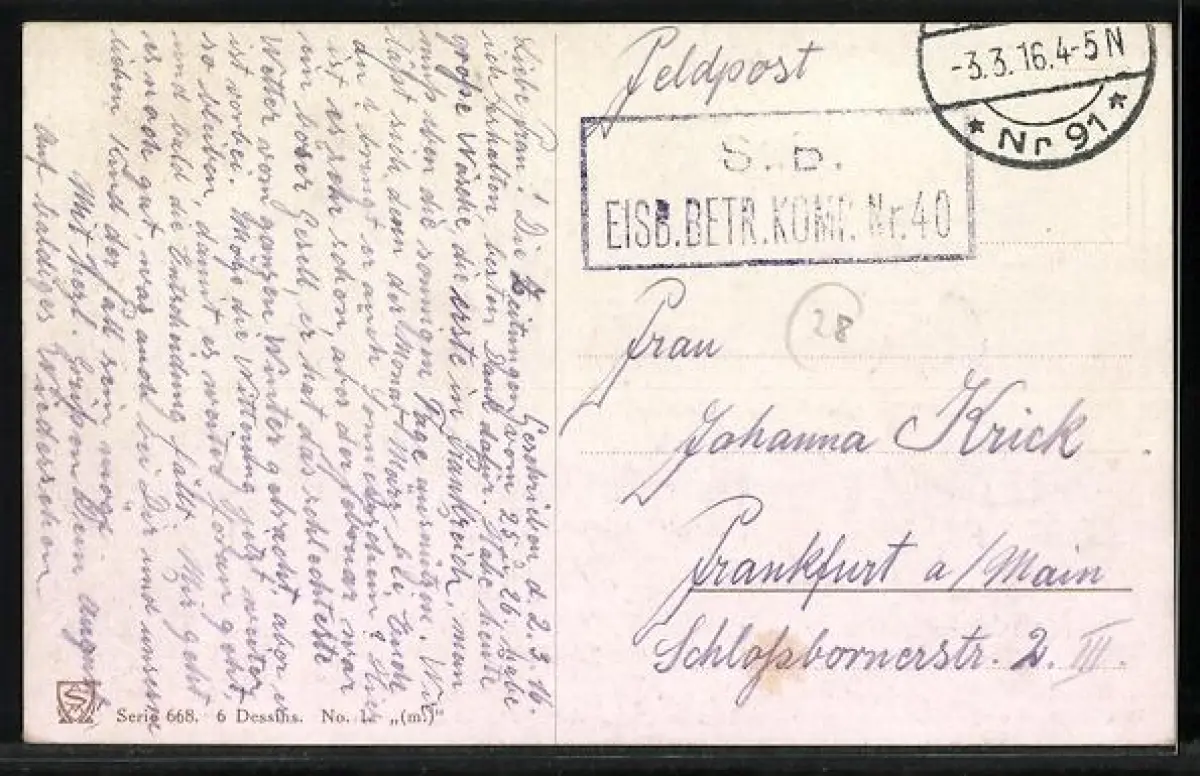 Geschrieben d. 2.3.16.
Liebe Frau! Die Zeitungen vom 25. u. 26. habe
ich erhalten, besten Dank dafür. Habe heute
große Wäsche, die erste in Frankreich, man
muß eben die sonnigen Tage ausnützen. Wie
läßt sich denn der Monat März bei Euch
an? bringt er auch Sonnenschein? Hier
ist es sehr schön, aber der Februar war
ein böser Gesell, er hat das schlechteste
Wetter vom ganzen Winter gebracht, aber er
ist vorbei. Möge die Witterung jetzt weiter
so bleiben, damit es vorwärts gehen geht,
und bald die Entscheidung fällt. Mir geht
es noch gut, was auch bei Dir und unserm
lieben Kind der Fall sein möge.
Mit herzl. Gruß von Dein August
Auf baldiges Wiedersehen
Serie 668. 6 Dessins. No. 1. „(m.)"
Feldpost
-3.3.16.4-5N
* Nr 91 *
S.B.
EISB.BETR.KOMP. Nr.40
28
Frau
Johanna Krick
Frankfurt a/Main
Schloßbornerstr. 2. III.